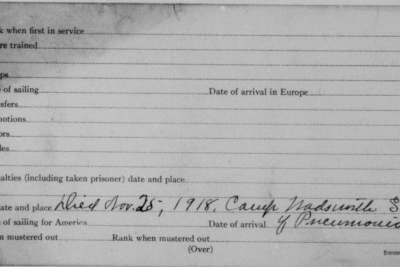 k when first in service
re trained
ps
of sailing Date of arrival in Europe
sfers
notions
ors
les
alties (including taken prisoner) date and place
ate and place Died Nov. 25, 1918, Camp Wadsworth S
of sailing for America Date of arrival of Pneumonia
n mustered out Rank when mustered out
(Over)